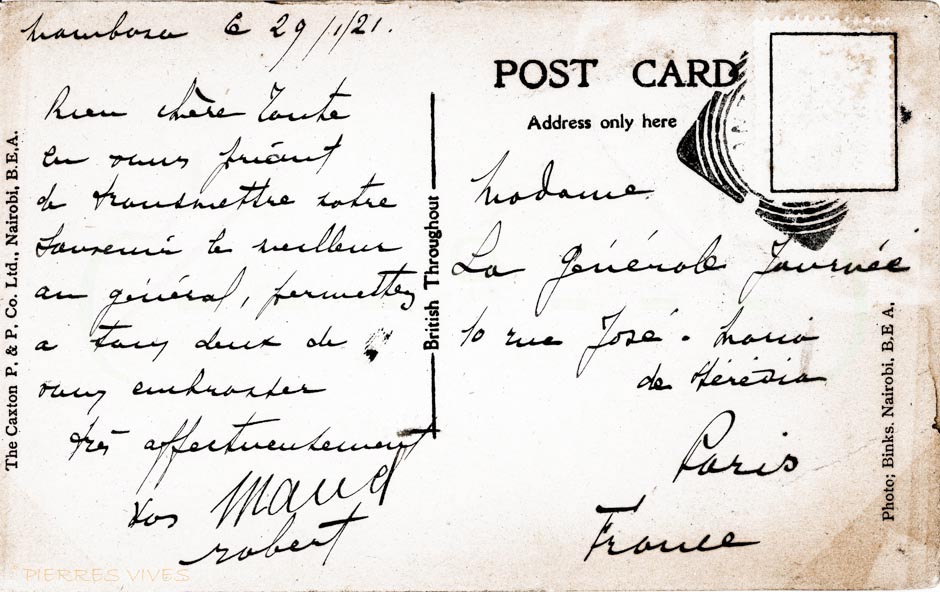 Mombasa le 29/1/21.
Bien chère Tante
en vous priant
de transmettre notre
souvenir le meilleur
au général, permettez
a tous deux de
vous embrasser
très affectueusement
Vos Maud
robert
The Caxton P. & P. Co. Ltd., Nairobi, B.E.A.
British Throughout
POST CARD
Address only here
Madame
La Générale Journée
10 rue José-Maria
de Hérédia
Paris
France
Photo; Binks. Nairobi, B.E A.
PIERRES VIVES